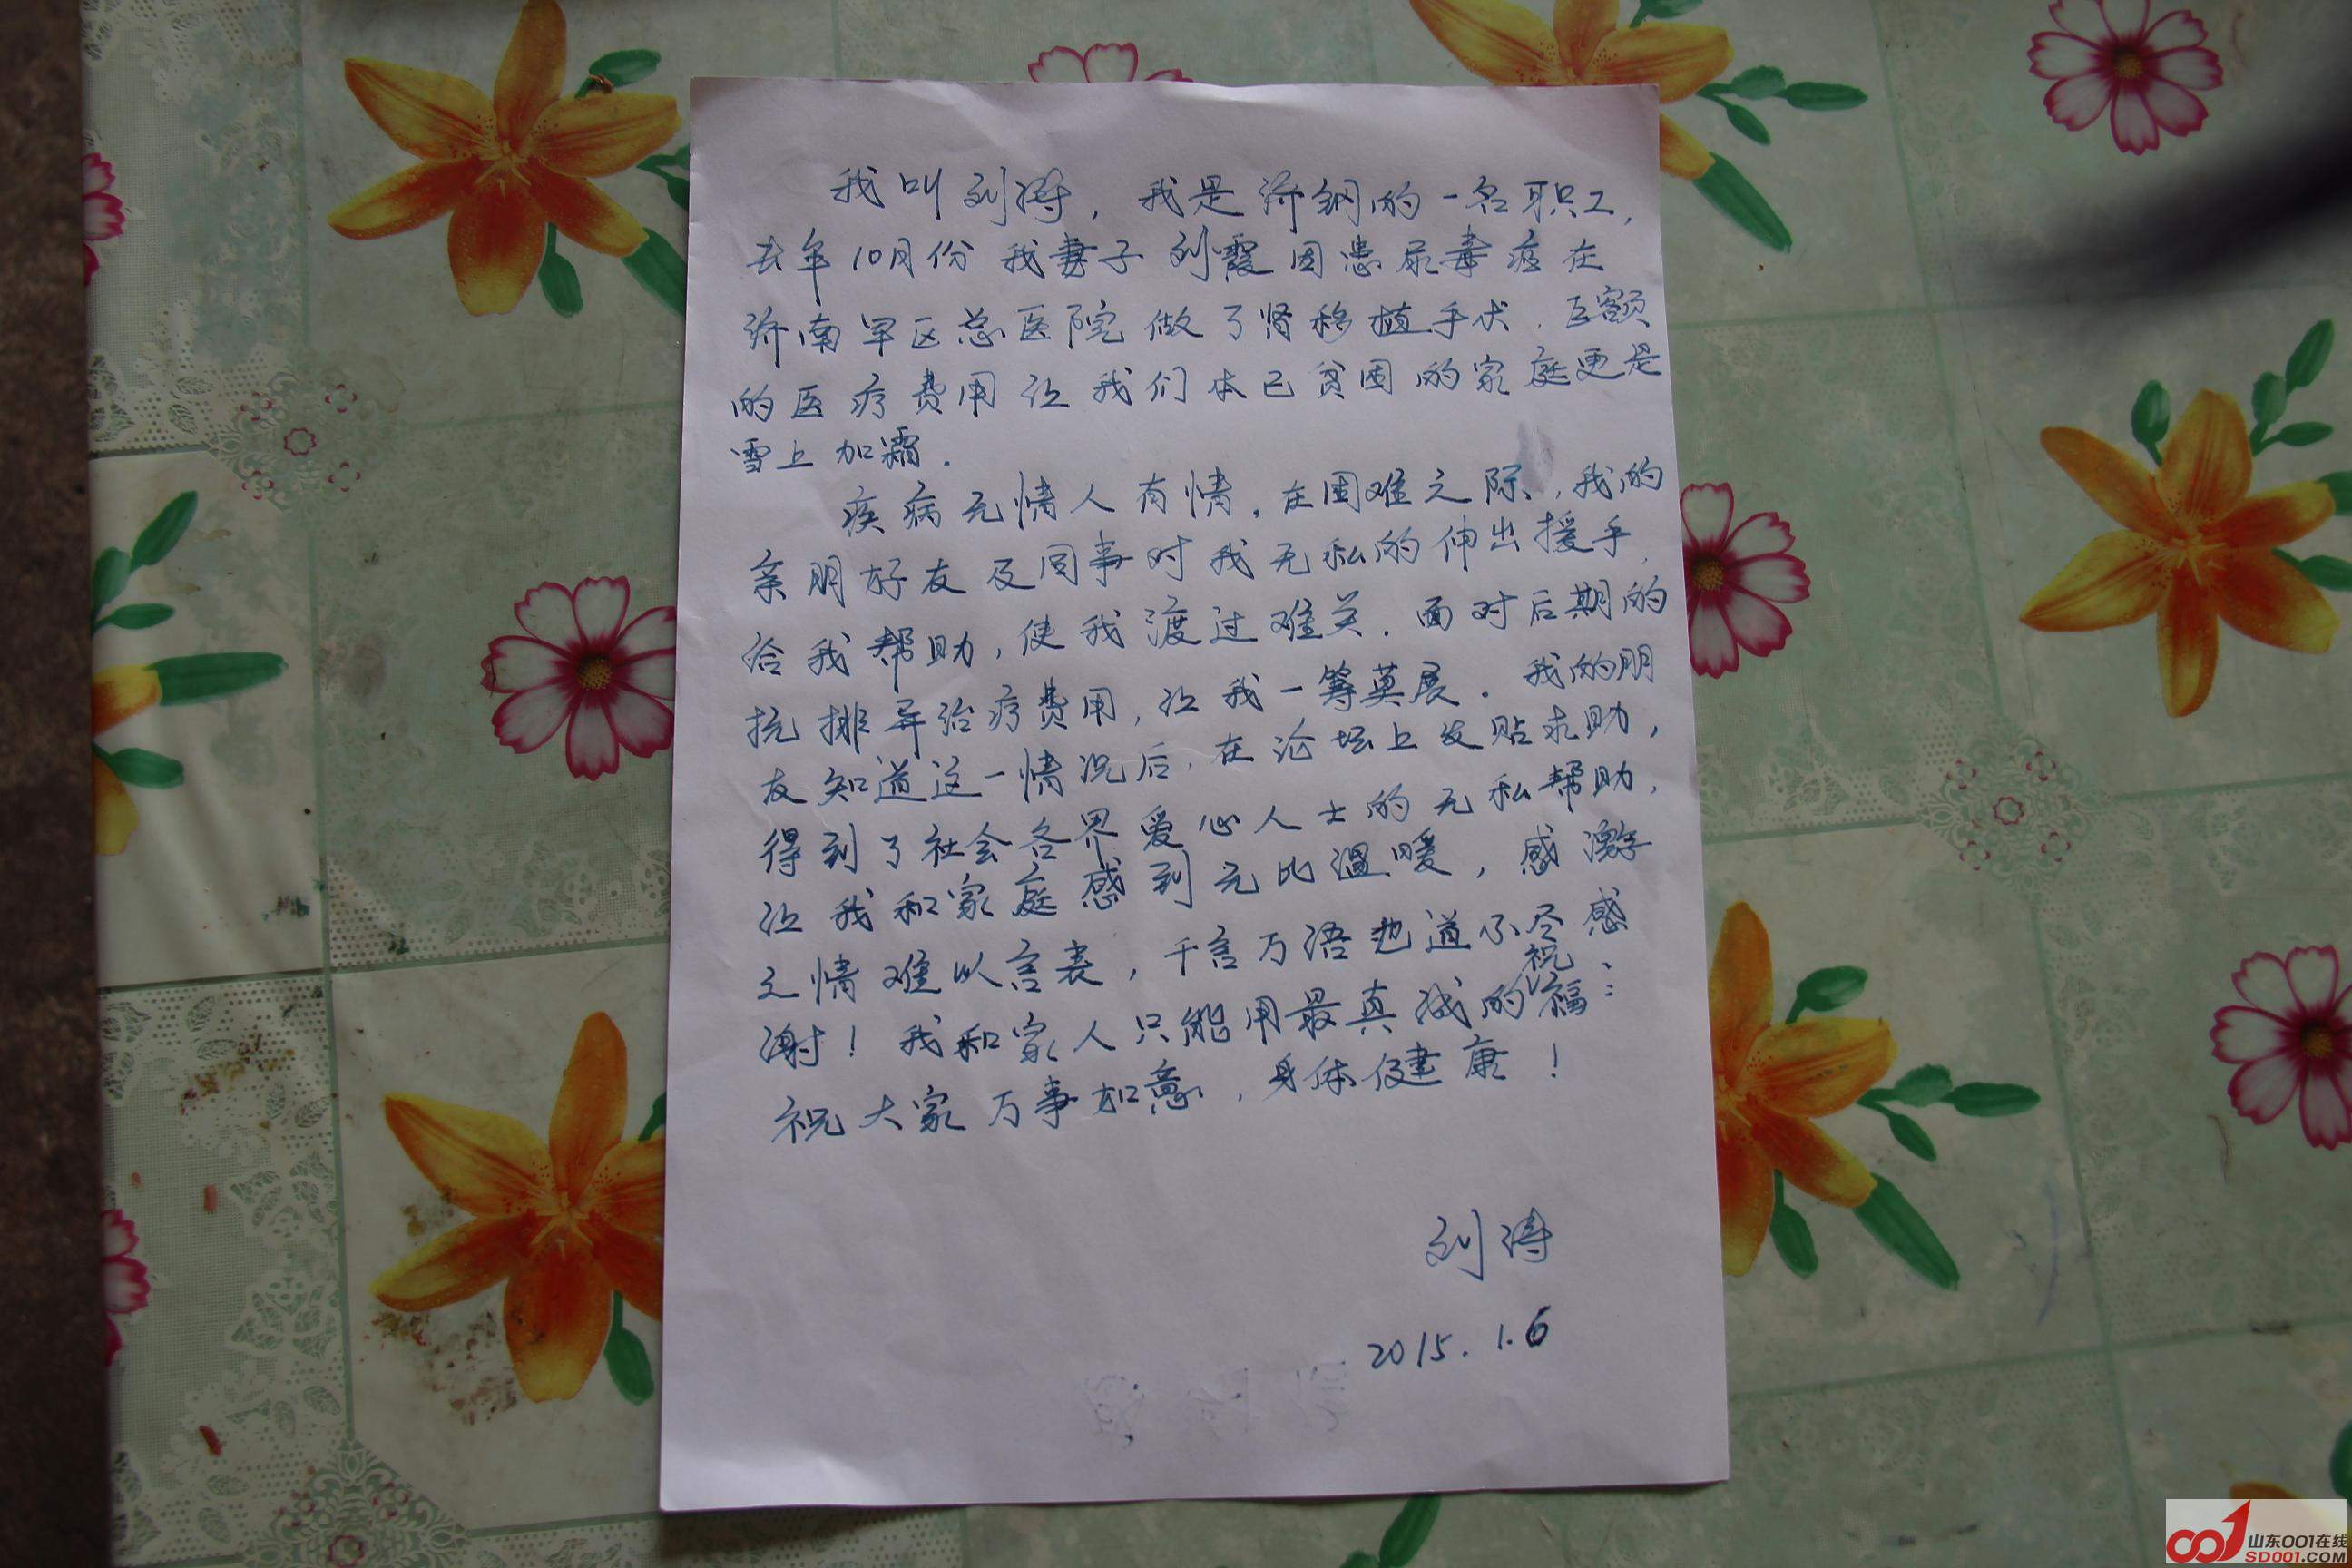 我叫刘涛，我是济钢的一名职工，
去年10月份我妻子刘霞因患尿毒症在
济南军区总医院做了肾移植手术，巨额
的医疗费用让我们本已贫困的家庭更是
雪上加霜．
疾病无情人有情，在困难之际，我的
亲朋好友及同事对我无私的伸出援手，
给我帮助，使我渡过难关．面对后期的
抗排异治疗费用，让我一筹莫展．我的朋
友知道这一情况后，在论坛上发贴求助，
得到了社会各界爱心人士的无私帮助，
让我和家庭感到无比温暖，感激
之情难以言表，千言万语也道不尽感
谢！我和家人只能用最真诚的祝福：
祝大家万事如意，身体健康！
刘涛
2015.1.6
001
山东001在线
SD001.COM